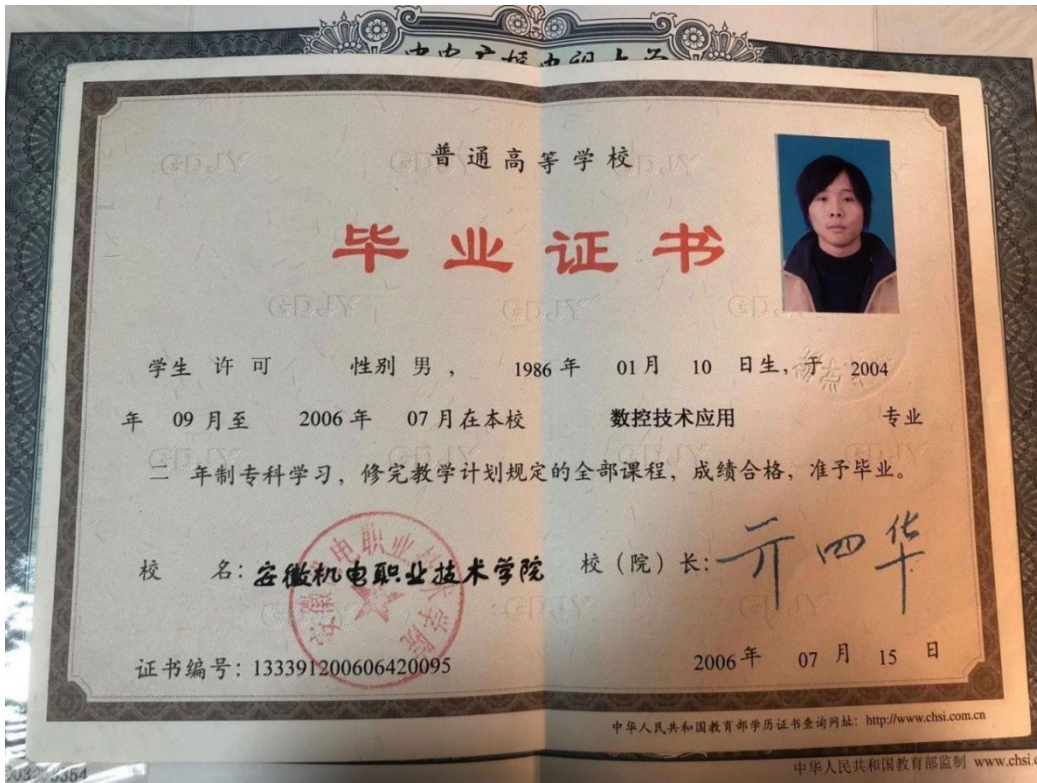 中央广播电视大学
普通高等学校
毕业证书
学生 许可 性别 男 , 1986 年 01 月 10 日生, 于 2004
年 09 月至 2006 年 07 月在本校 数控技术应用 专业
二 年制专科学习, 修完教学计划规定的全部课程, 成绩合格, 准予毕业。
校 名: 安徽机电职业技术学院 校 (院) 长: 亓四华
安徽机电职业技术学院
证书编号: 133391200606420095 2006 年 07 月 15 日
中华人民共和国教育部学历证书查询网址: http://www.chsi.com.cn
中华人民共和国教育部监制 www.chsi.c
GDJY
GDJY
GDJY
GDJY
GDJY